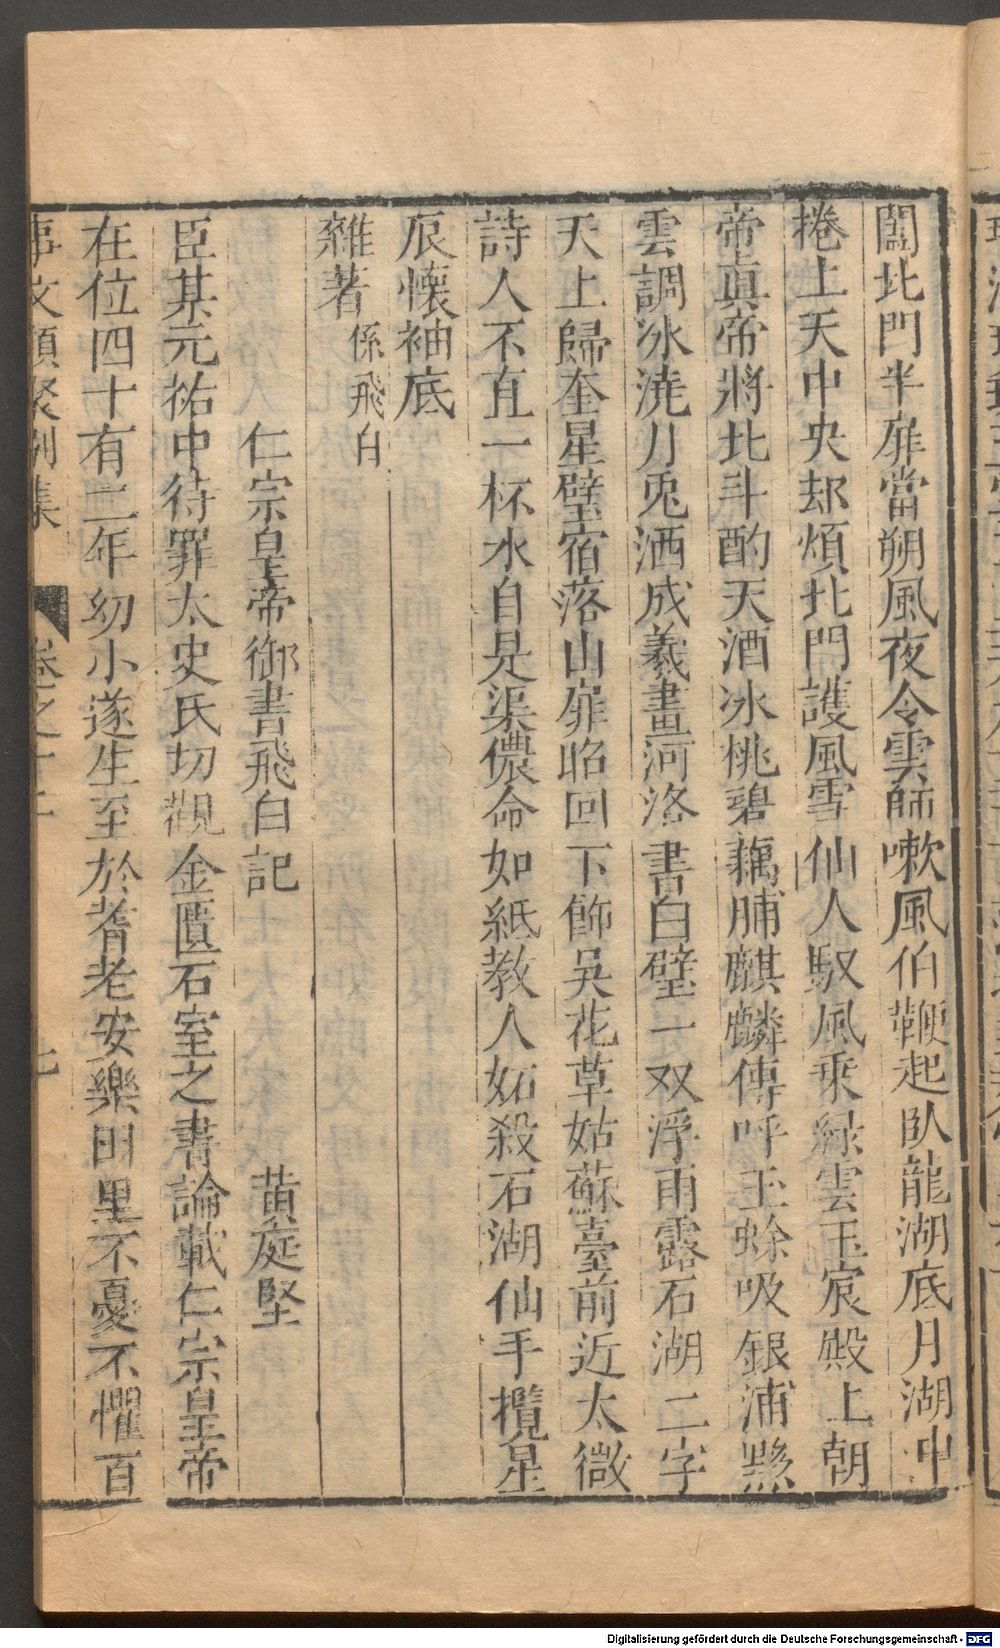 闔北門半扉當朔風夜令雲師嗽風伯鞭起臥龍湖底月湖中
捲上天中央却煩北門護風雪仙人馭風乘綠雲玉宸殿上朝
帝真帝將北斗酌天酒冰桃碧藕脯麒麟傳呼玉蜍吸銀浦黟
雲調冰澆月兎洒成羲畫河洛書白璧一双浮雨露石湖二字
天上歸奎星壁宿落山扉昭回下飾吳花草姑蘇臺前近太微
詩人不直一杯水自是渠儂命如紙教人妬殺石湖仙手攬星
辰懷袖底
雜著 係飛白
仁宗皇帝御書飛白記 黄庭堅
臣某元祐中待罪太史氏切觀金匱石室之書論載仁宗皇帝
在位四十有二年幼小遂生至於耆老安樂田里不憂不懼百
事文類聚別集 卷之十二 七
Digitalisierung gefördert durch die Deutsche Forschungsgemeinschaft - DFG